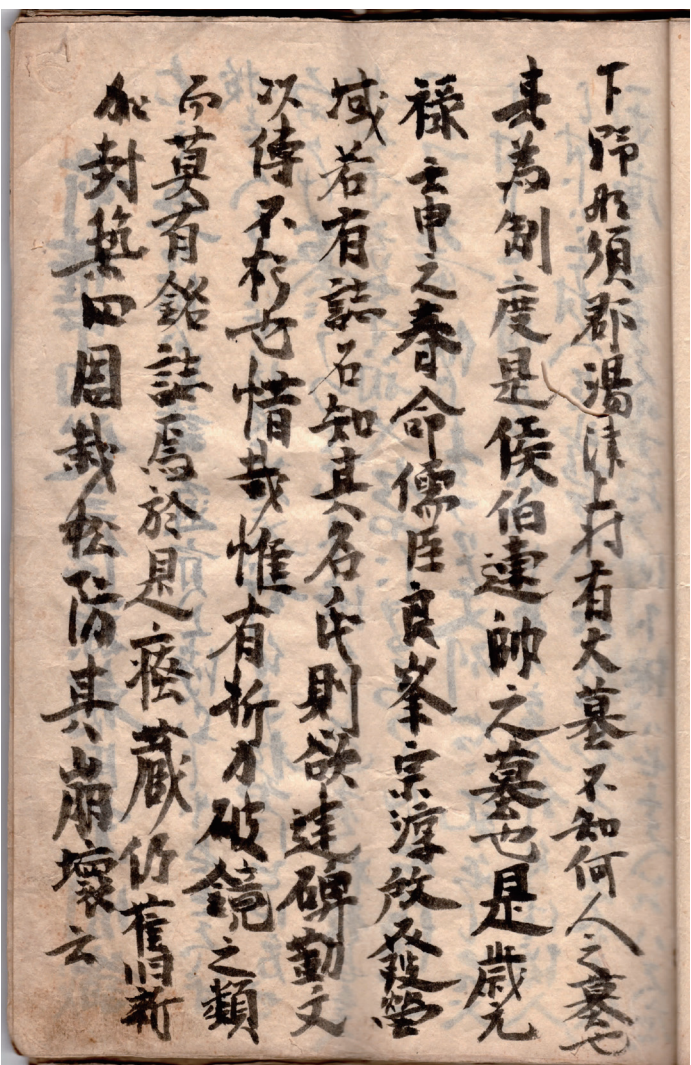 下野那須郡湯津上村有大墓不知何人之墓也
其為制度是侯伯連帥之墓也是歳元
禄壬申之春命儒臣良峯宗淳啟發塋
域若有誌石知其名氏則欲建碑勒文
以傳不朽也惜哉惟有折刀破鏡之類
而莫有銘誌焉於是瘞蔵仍舊新
加封築四周栽松防其崩壞云